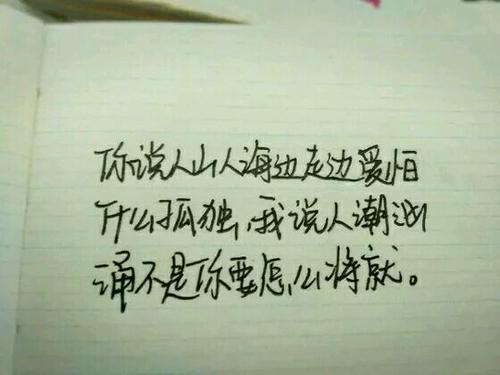 你说人山人海边走边爱怕
什么孤独,我说人潮汹
涌不是你要怎么将就。